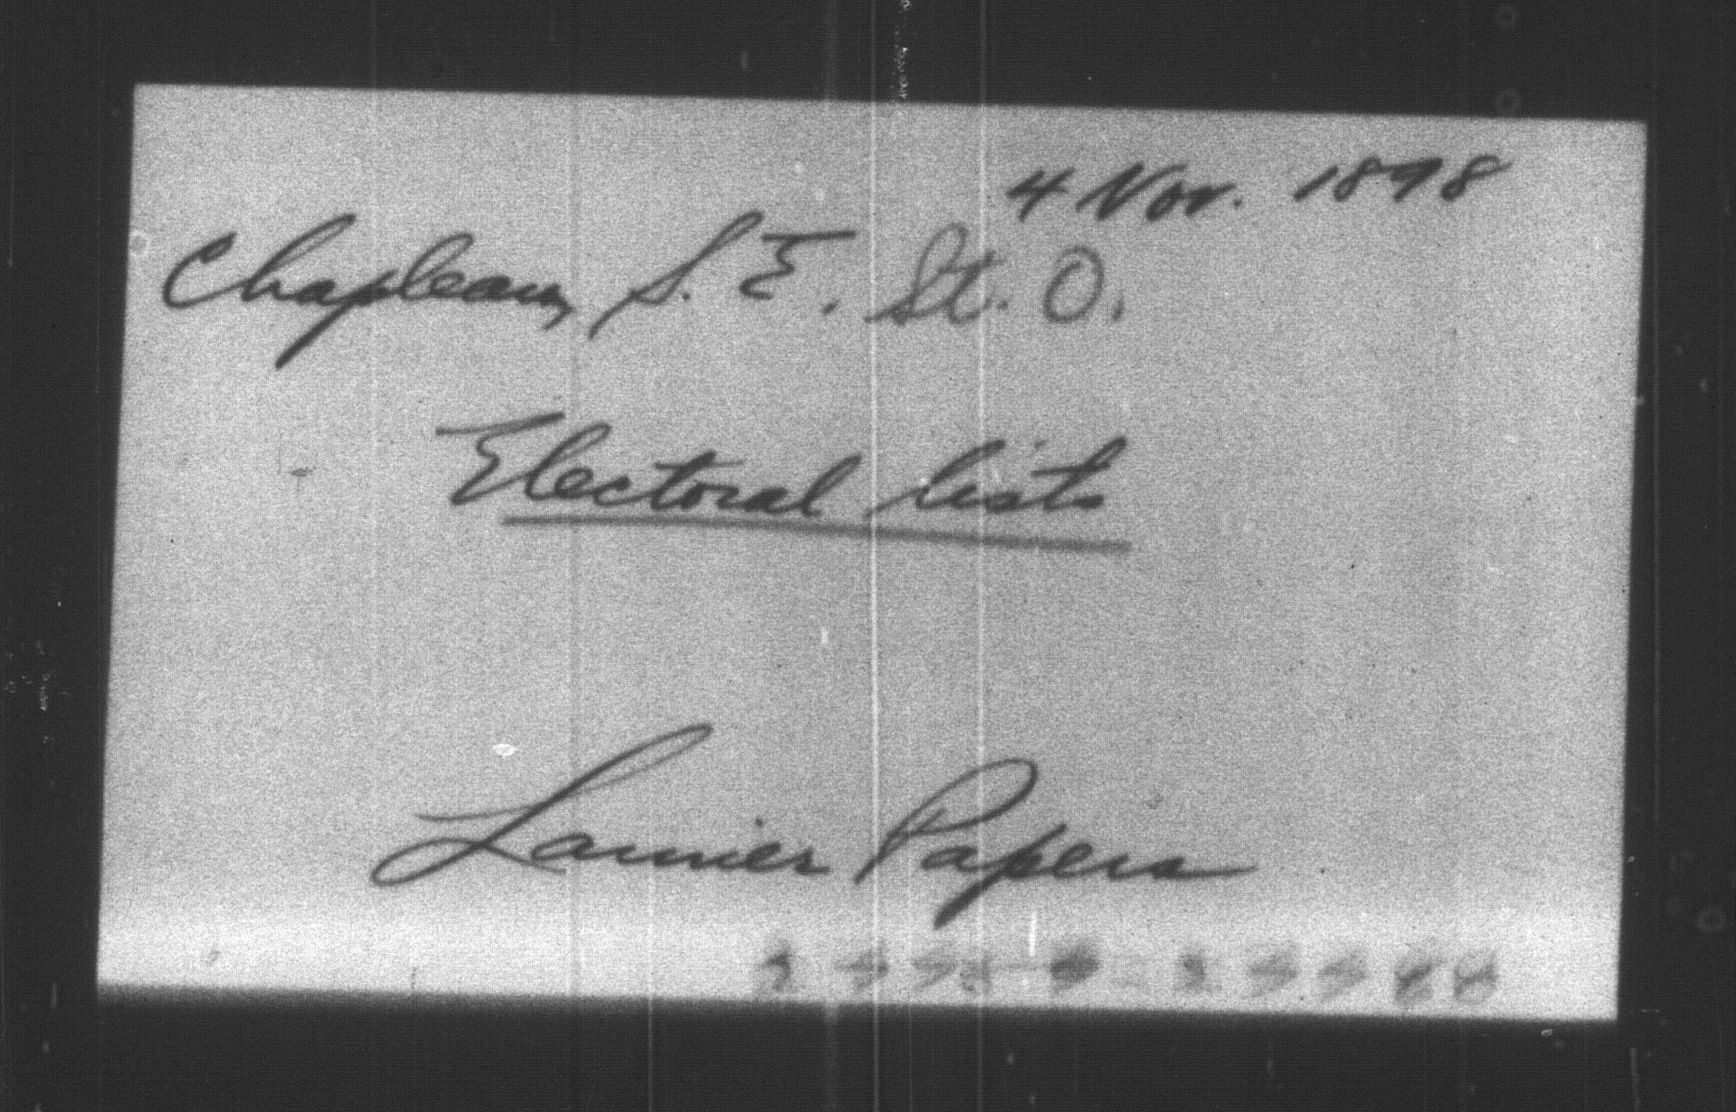 4 Nov. 1898
Chapleau, S. E. St. O.
Electoral lists
Laurier Papers